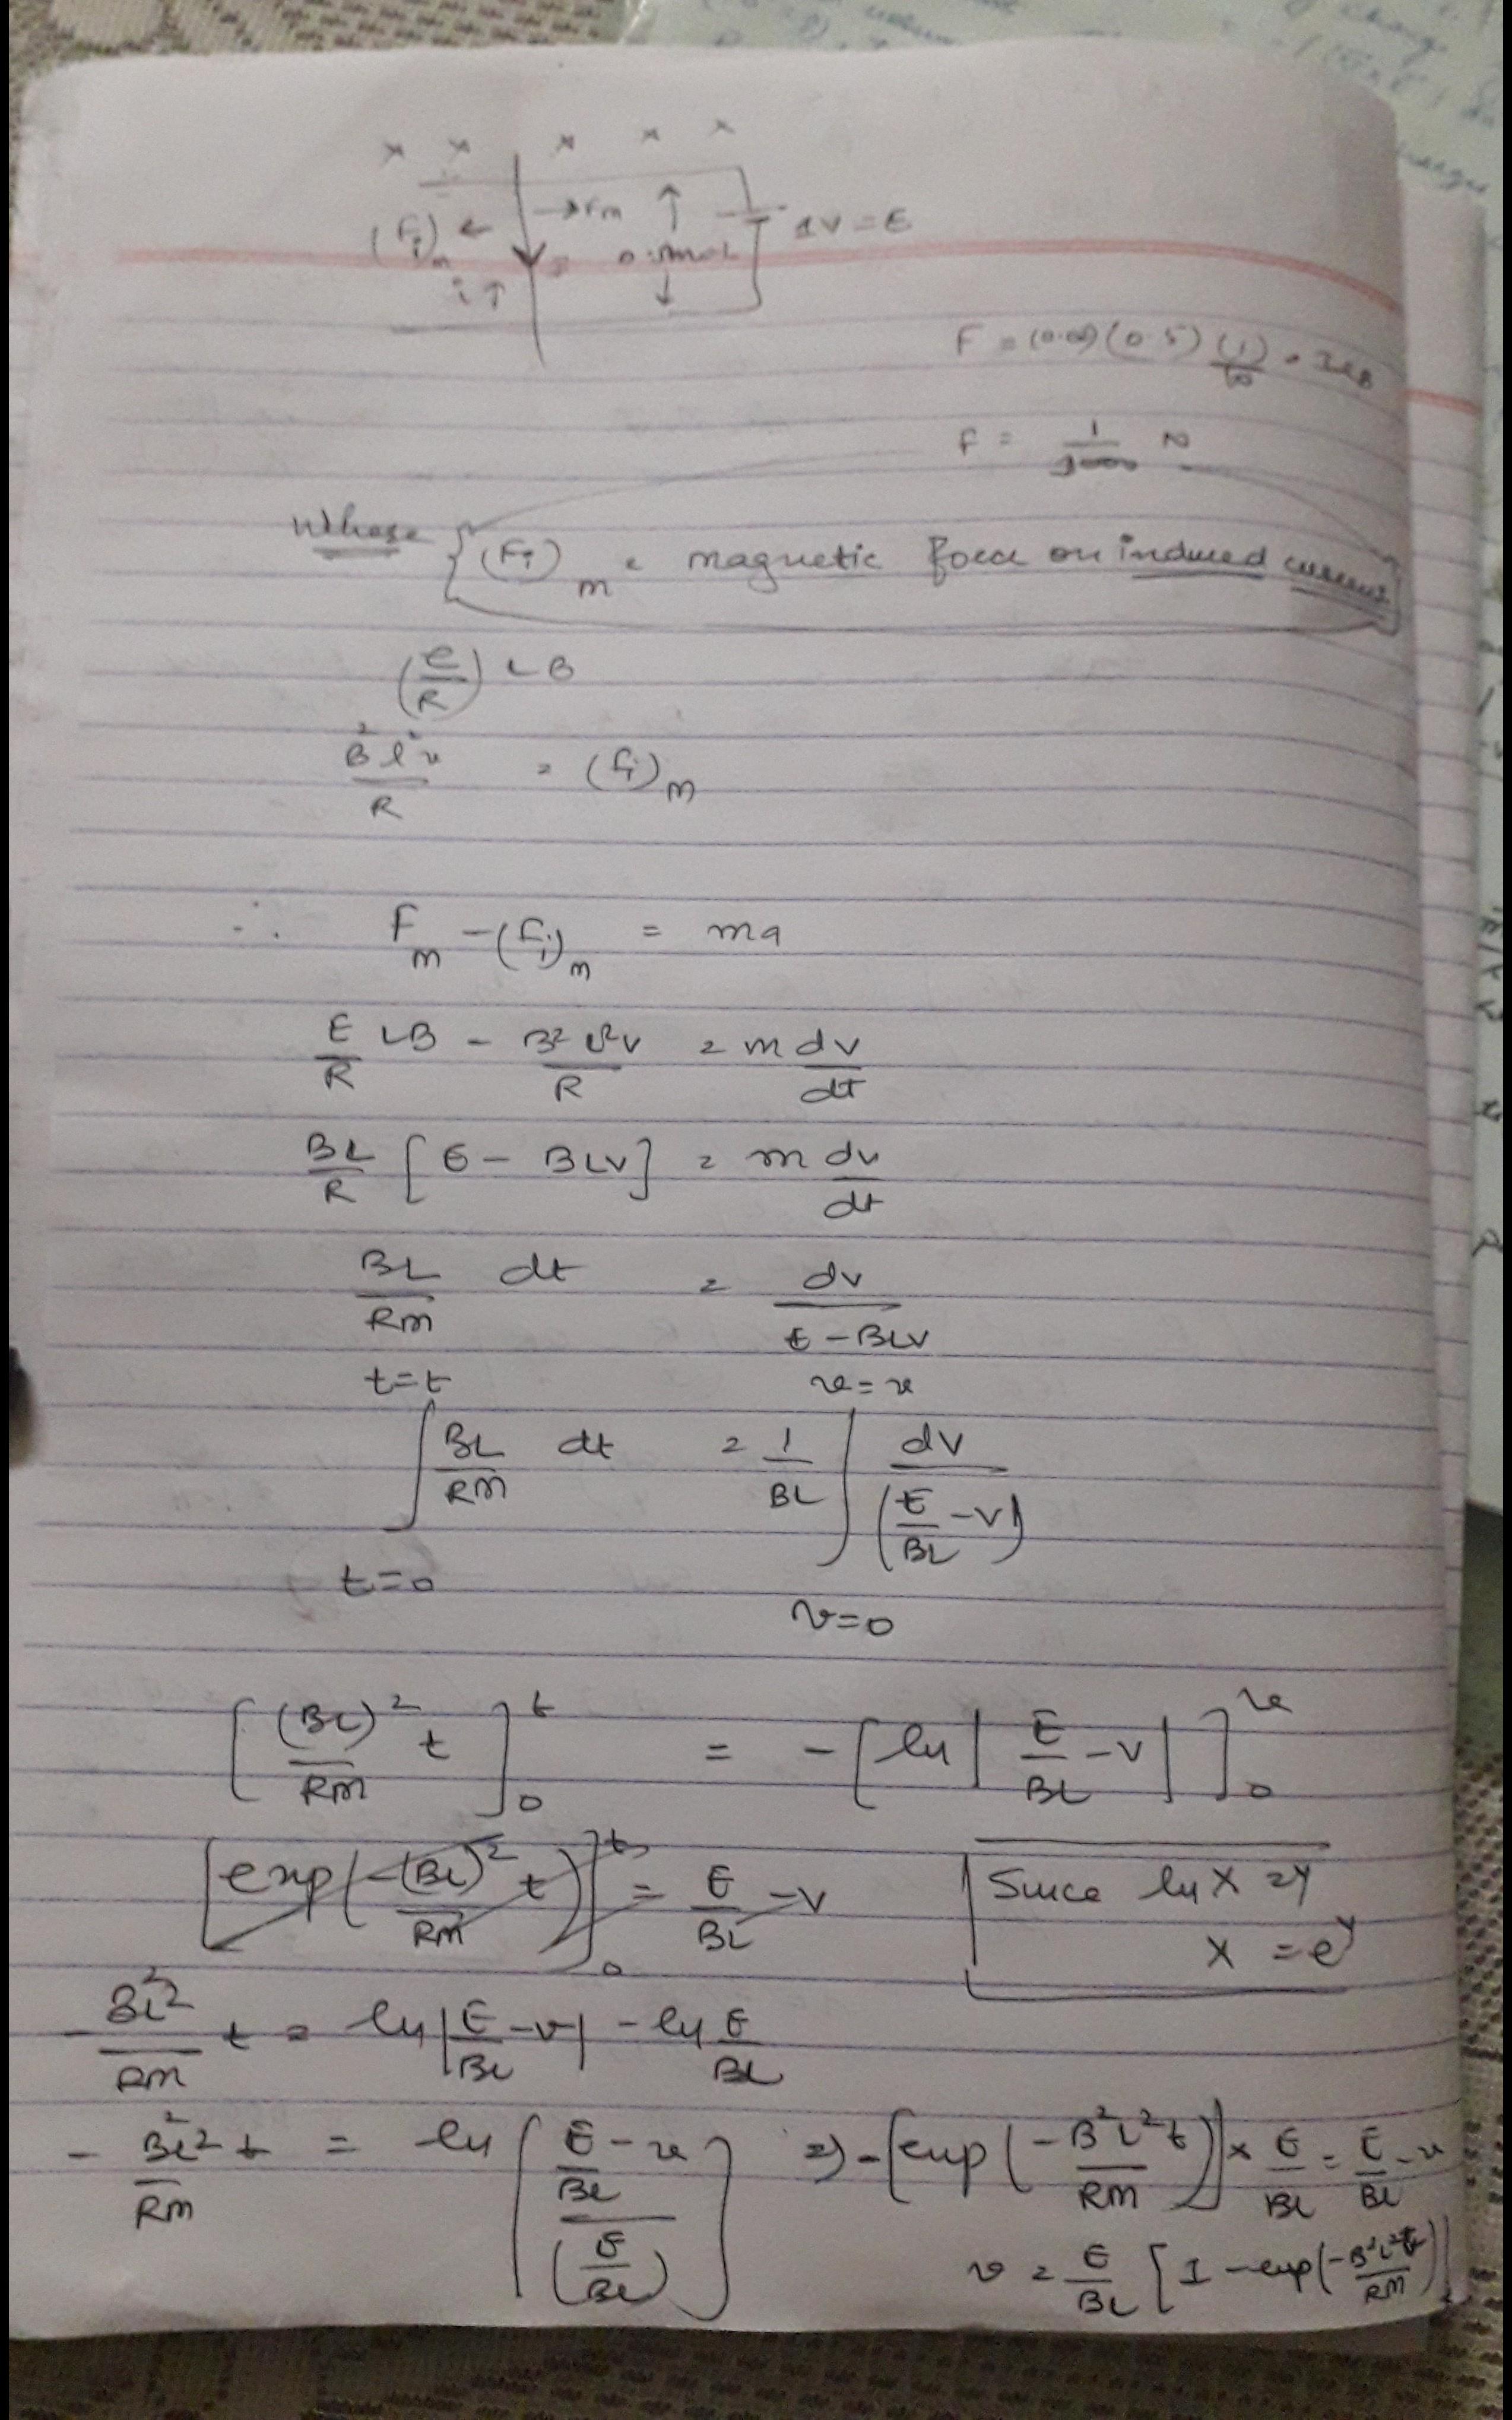 x x x x x
(Fi)m ← → Fm ↑ 1V = E
i ↑ ↓
F = (0.02)(0.5)(1)/10 = ILB
F = 1/1000 N
Where { (Fi)m = magnetic force on induced current }
(e/R) LB
B²l²v/R = (fi)m
∴ Fm - (Fi)m = ma
E/R LB - B²l²v/R = m dv/dt
BL/R [E - BLV] = m dv/dt
BL/Rm dt = dv/(E - BLV)
t=t v=v
∫ BL/Rm dt = 1/BL ∫ dv/(E/BL - v)
t=0 v=0
[(BL)²/Rm t]₀ᵗ = -[ln|E/BL - v|]₀ᵛ
[exp(-(BL)²/Rm t)]₀ᵗ = E/BL - v
Since ln x = y
x = eʸ
- B²l²/Rm t = ln|E/BL - v| - ln E/BL
- B²l²/Rm t = ln[(E/BL - v)/(E/BL)] ⇒ -[exp(-B²L²t/Rm)] × E/BL = E/BL - v
v = E/BL [1 - exp(-B²L²t/Rm)]